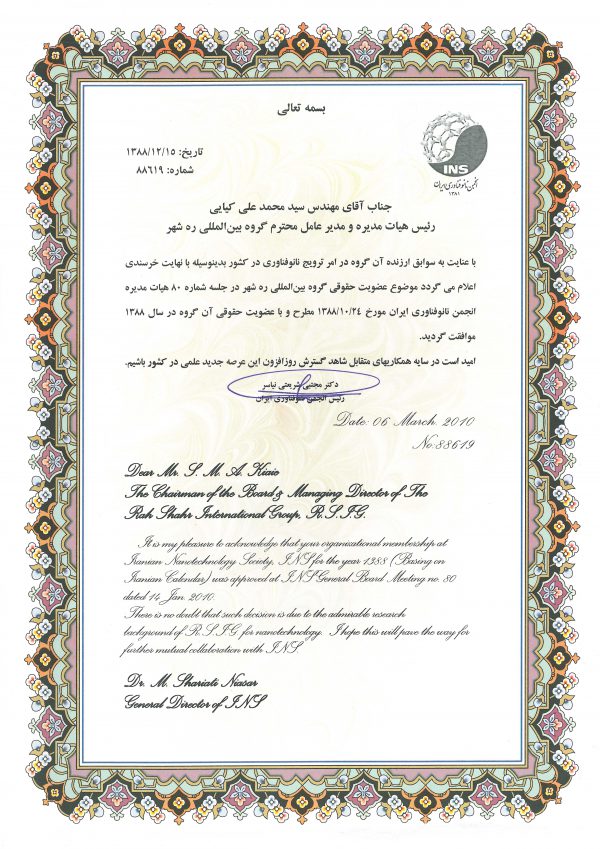 بسمه تعالی
INS
انجمن نانوفناوری ایران
۱۳۸۱
تاریخ: ۱۳۸۸/۱۲/۱۵
شماره: ۸۸۶۱۹
جناب آقای مهندس سید محمد علی کیایی
رئیس هیات مدیره و مدیر عامل محترم گروه بین‌المللی ره شهر
با عنایت به سوابق ارزنده آن گروه در امر ترویج نانوفناوری در کشور بدینوسیله با نهایت خرسندی
اعلام می گردد موضوع عضویت حقوقی گروه بین‌المللی ره شهر در جلسه شماره ۸۰ هیات مدیره
انجمن نانوفناوری ایران مورخ ۱۳۸۸/۱۰/۲۴ مطرح و با عضویت حقوقی آن گروه در سال ۱۳۸۸
موافقت گردید.
امید است در سایه همکاریهای متقابل شاهد گسترش روزافزون این عرصه جدید علمی در کشور باشیم.
دکتر مجتبی شریعتی نیاسر
رئیس انجمن نانوفناوری ایران
Date: 06 March. 2010
No:88619
Dear Mr. S. M. A. Kiaie
The Chairman of the Board & Managing Director of The
Rah Shahr International Group, R.S.I.G.
It is my pleasure to acknowledge that your organizational membership at
Iranian Nanotechnology Society, INS for the year 1388 (Basing on
Iranian Calendar) was approved at INS General Board Meeting no. 80
dated 14 Jan. 2010.
There is no doubt that such decision is due to the admirable research
background of R.S.I.G for nanotechnology. I hope this will pave the way for
further mutual collaboration with INS.
Dr. M. Shariati Niasar
General Director of INS